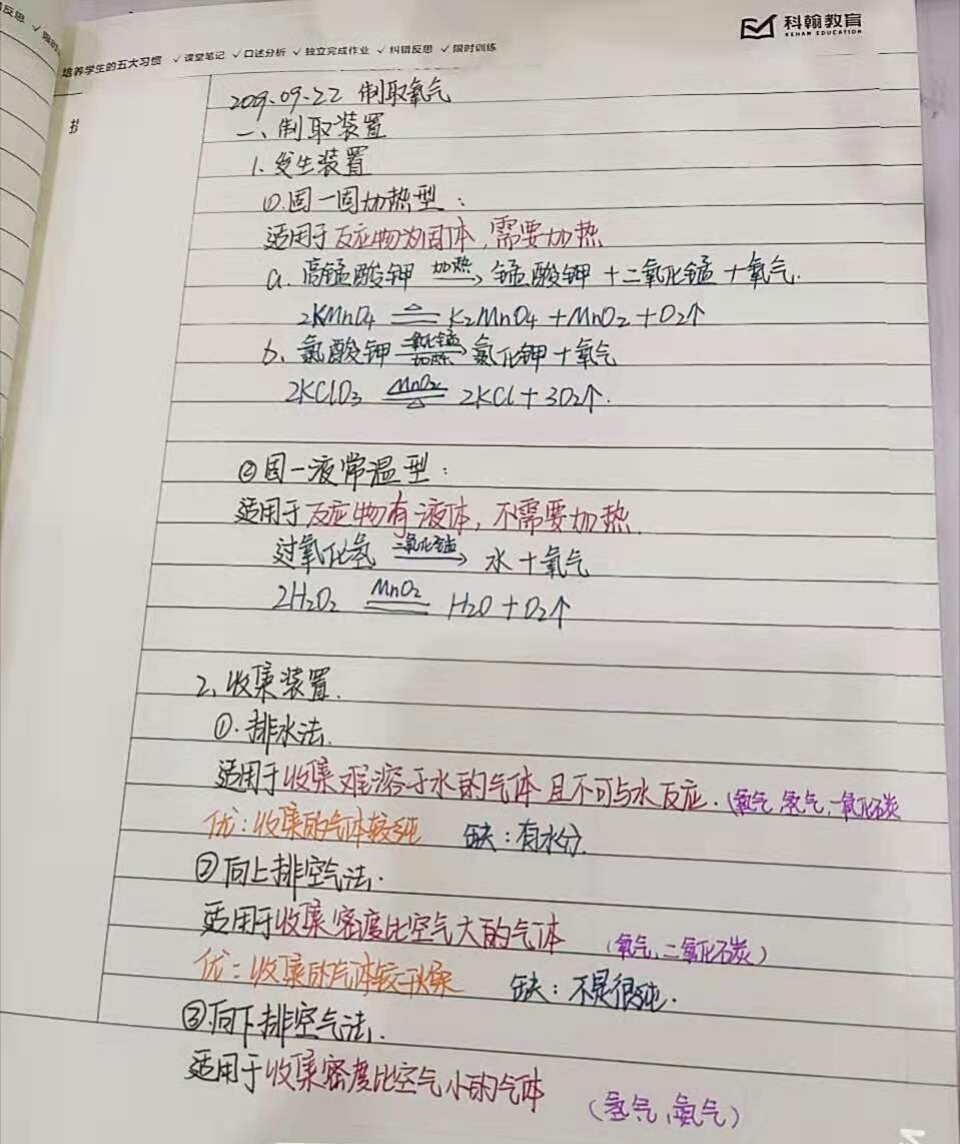 科翰教育
KEHAN EDUCATION
培养学生的五大习惯 ✓课堂笔记 ✓口述分析 ✓独立完成作业 ✓纠错反思 ✓限时训练
2019.09.22 制取氧气
一、制取装置
1. 发生装置
①.固一固加热型：
适用于反应物为固体，需要加热
a. 高锰酸钾 加热→ 锰酸钾+二氧化锰+氧气.
2KMnO4 =△= K2MnO4+MnO2+O2↑
b. 氯酸钾 二氧化锰/加热→ 氯化钾+氧气
2KClO3 =MnO2/△= 2KCl+3O2↑.
②固一液常温型：
适用于反应物有液体，不需要加热
过氧化氢 二氧化锰→ 水+氧气
2H2O2 =MnO2= H2O+O2↑
2、收集装置.
①.排水法.
适用于收集难溶于水的气体且不可与水反应.（氧气,氢气,一氧化碳
优：收集的气体较纯 缺：有水分.
②向上排空气法.
适用于收集密度比空气大的气体 （氧气,二氧化碳）
优：收集的气体较干燥 缺：不是很纯.
③.向下排空气法.
适用于收集密度比空气小的气体 （氢气,氨气）